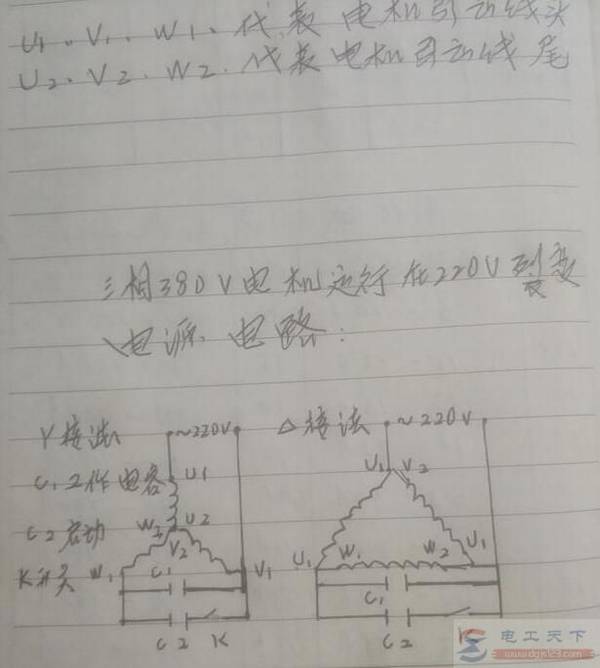 U1、V1、W1、代表电机引出线头
U2、V2、W2、代表电机引出线尾
三相380V电机运行在220V
电源电路:
Y接法 ~220V
△接法 ~220V
C1工作电容 U1
U1 V2
C2启动 W2 U2
V2
K开关 W1 C1 V1
U1 W1 W2 U1
C1
C2 K
C2
电工天下
www.dgjs123.com